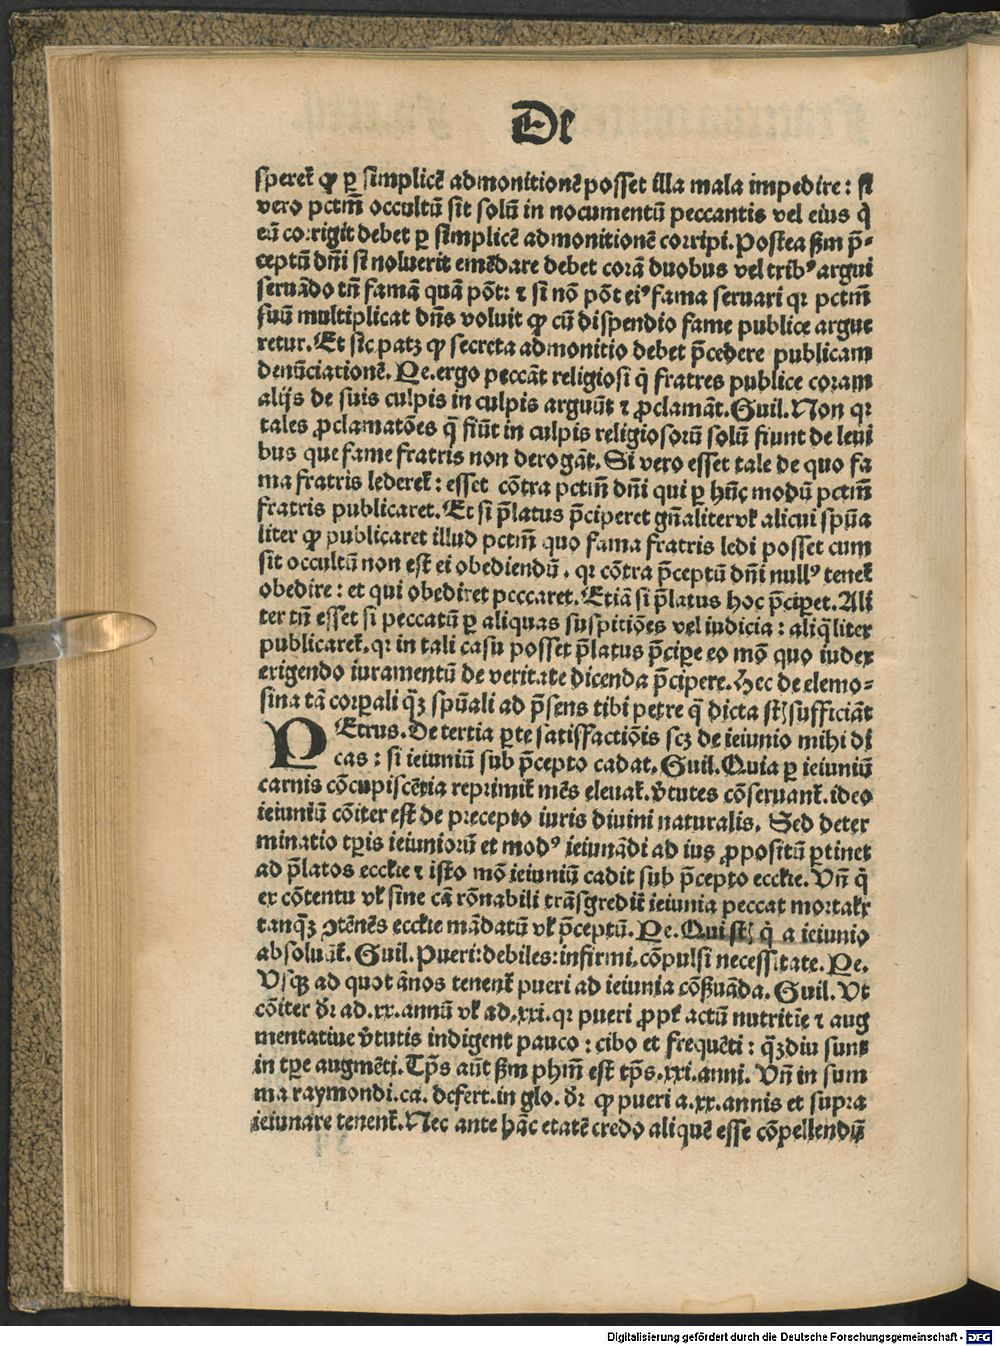 De
speret̃ qp̃ ꝑ simplicē admonitionē posset illa mala impedire: si
vero pctm̃ occultū sit solū in nocumentū peccantis vel eius q̃
eū corrigit debet ꝑ simplicē admonitionē corripi. Postea ẞm p̃-
ceptū dñi si noluerit emēdare debet corā duobus vel tribꝰ argui
seruādo tñ famā quā põt: ⁊ si nõ põt eiꝰ fama seruari qꝛ pctm̃
suū multiplicat dñs voluit qp̃ cū dispendio fame publice argue
retur. Et sic patꝫ qp̃ secreta admonitio debet p̃cedere publicam
denūciationē. Pe. ergo peccāt religiosi q̃ fratres publice coram
alijs de suis culpis in culpis arguūt ⁊ ꝓclamāt. Guil. Non qꝛ
tales ꝓclamatões q̃ fiūt in culpis religiosorū solū fiunt de leui
bus que fame fratris non derogāt. Si vero esset tale de quo fa
ma fratris lederet̃: esset cõtra pctm̃ dñi qui ꝑ hñc modū pctm̃
fratris publicaret. Et si p̃latus p̃ciperet gñaliter vl̃ alicui spũa
liter qp̃ publicaret illud pctm̃ quo fama fratris ledi posset cum
sit occultū non est ei obediendū. qꝛ cõtra p̃ceptū dñi nullꝰ tenet̃
obedire: et qui obediret peccaret. Etiā si p̃latus hoc p̃ciꝑet. Ali
ter tñ esset si peccatū ꝑ aliquas suspitiões vel iudicia: aliq̃liter
publicaret̃. qꝛ in tali casu posset p̃latus p̃ciꝑe eo mõ quo iudex
exigendo iuramentū de veritate dicenda p̃cipere. Hec de elemo-
sina tā corꝑali q̃ꝫ spũali ad p̃sens tibi petre q̃ dicta st̃ sufficiāt
PEtrus. De tertia ꝑte satisfactiõis scꝫ de ieiunio mihi di
cas: si ieiuniū sub p̃cepto cadat. Guil. Quia ꝑ ieiuniū
carnis cõcupiscētia reprimit̃ mēs eleuat̃. v̑tutes cõseruant̃. ideo
ieiuniū cõiter est de precepto iuris diuini naturalis. Sed deter
minatio tꝑis ieiuniorū et modꝰ ieiunādi ad ius ꝓpositū ꝑtinet
ad p̃latos eccl̃ie ⁊ isto mõ ieiuniū cadit sub p̃cepto eccl̃ie. Vñ q̃
ex cõtentu vl̃ sine cā rõnabili trāsgredit̃ ieiunia peccat mortalr̃
tanq̃ꝫ ꝯtēnēs eccl̃ie mādatū vl̃ p̃ceptū. Pe. Qui st̃ q̃ a ieiunio
absoluāt̃. Guil. Pueri: debiles: infirmi. cõpulsi necessitate. Pe.
Vsqꝫ ad quot ānos tenent̃ pueri ad ieiunia cõẞuāda. Guil. Vt
cõiter dr̃ ad. xx. annū vl̃ ad. xxi. qꝛ pueri ꝓpt̃ actū nutritie ⁊ aug
mentatiue v̑tutis indigent pauco: cibo et frequēti: q̃ꝫdiu sunt
in tꝑe augmēti. Tp̃s aũt ẞm phm̃ est tp̃s. xxi. anni. Vñ in sum
ma raymondi. ca. defert. in glo. dr̃ qp̃ pueri a. xx. annis et supra
ieiunare tenent̃. Nec ante hāc etatē credo aliquē esse cõpellendū
Digitalisierung gefördert durch die Deutsche Forschungsgemeinschaft - DFG